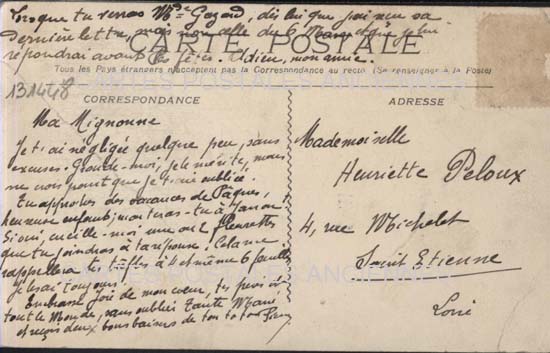 Lorsque tu verras Mme Gazard, dis lui que j'ai reçu sa
dernière lettre, mais non celle du 6 Mars et que je lui
répondrai avant les fêtes. Adieu, mon amie.
CARTE POSTALE
Tous les Pays étrangers n'acceptent pas la Correspondance au recto (Se renseigner à la Poste)
131448
CORRESPONDANCE
ADRESSE
Ma Mignonne
Je t'ai négligée quelque peu, sans
excuses. Gronde-moi, je le mérite, mais
ne crois point que je t'aie oubliée.
Tu approches des vacances de Pâques,
heureuse enfant, monteras-tu à
Si oui, cueille-moi une ou 2 fleurettes
que tu joindras à ta réponse. Cela me
rappellera les trèfles à 4 et même 6 feuilles
Embrasse Joié de mon cœur, tes
tout le Monde, sans oublier Tante Marie
et reçois deux bons baisers de ton
Mademoiselle
Henriette Peloux
4, rue Michelet
Saint Etienne
Loire
CARTES POSTALES ANCIENNES
CARTES POSTALES ANCIENNES